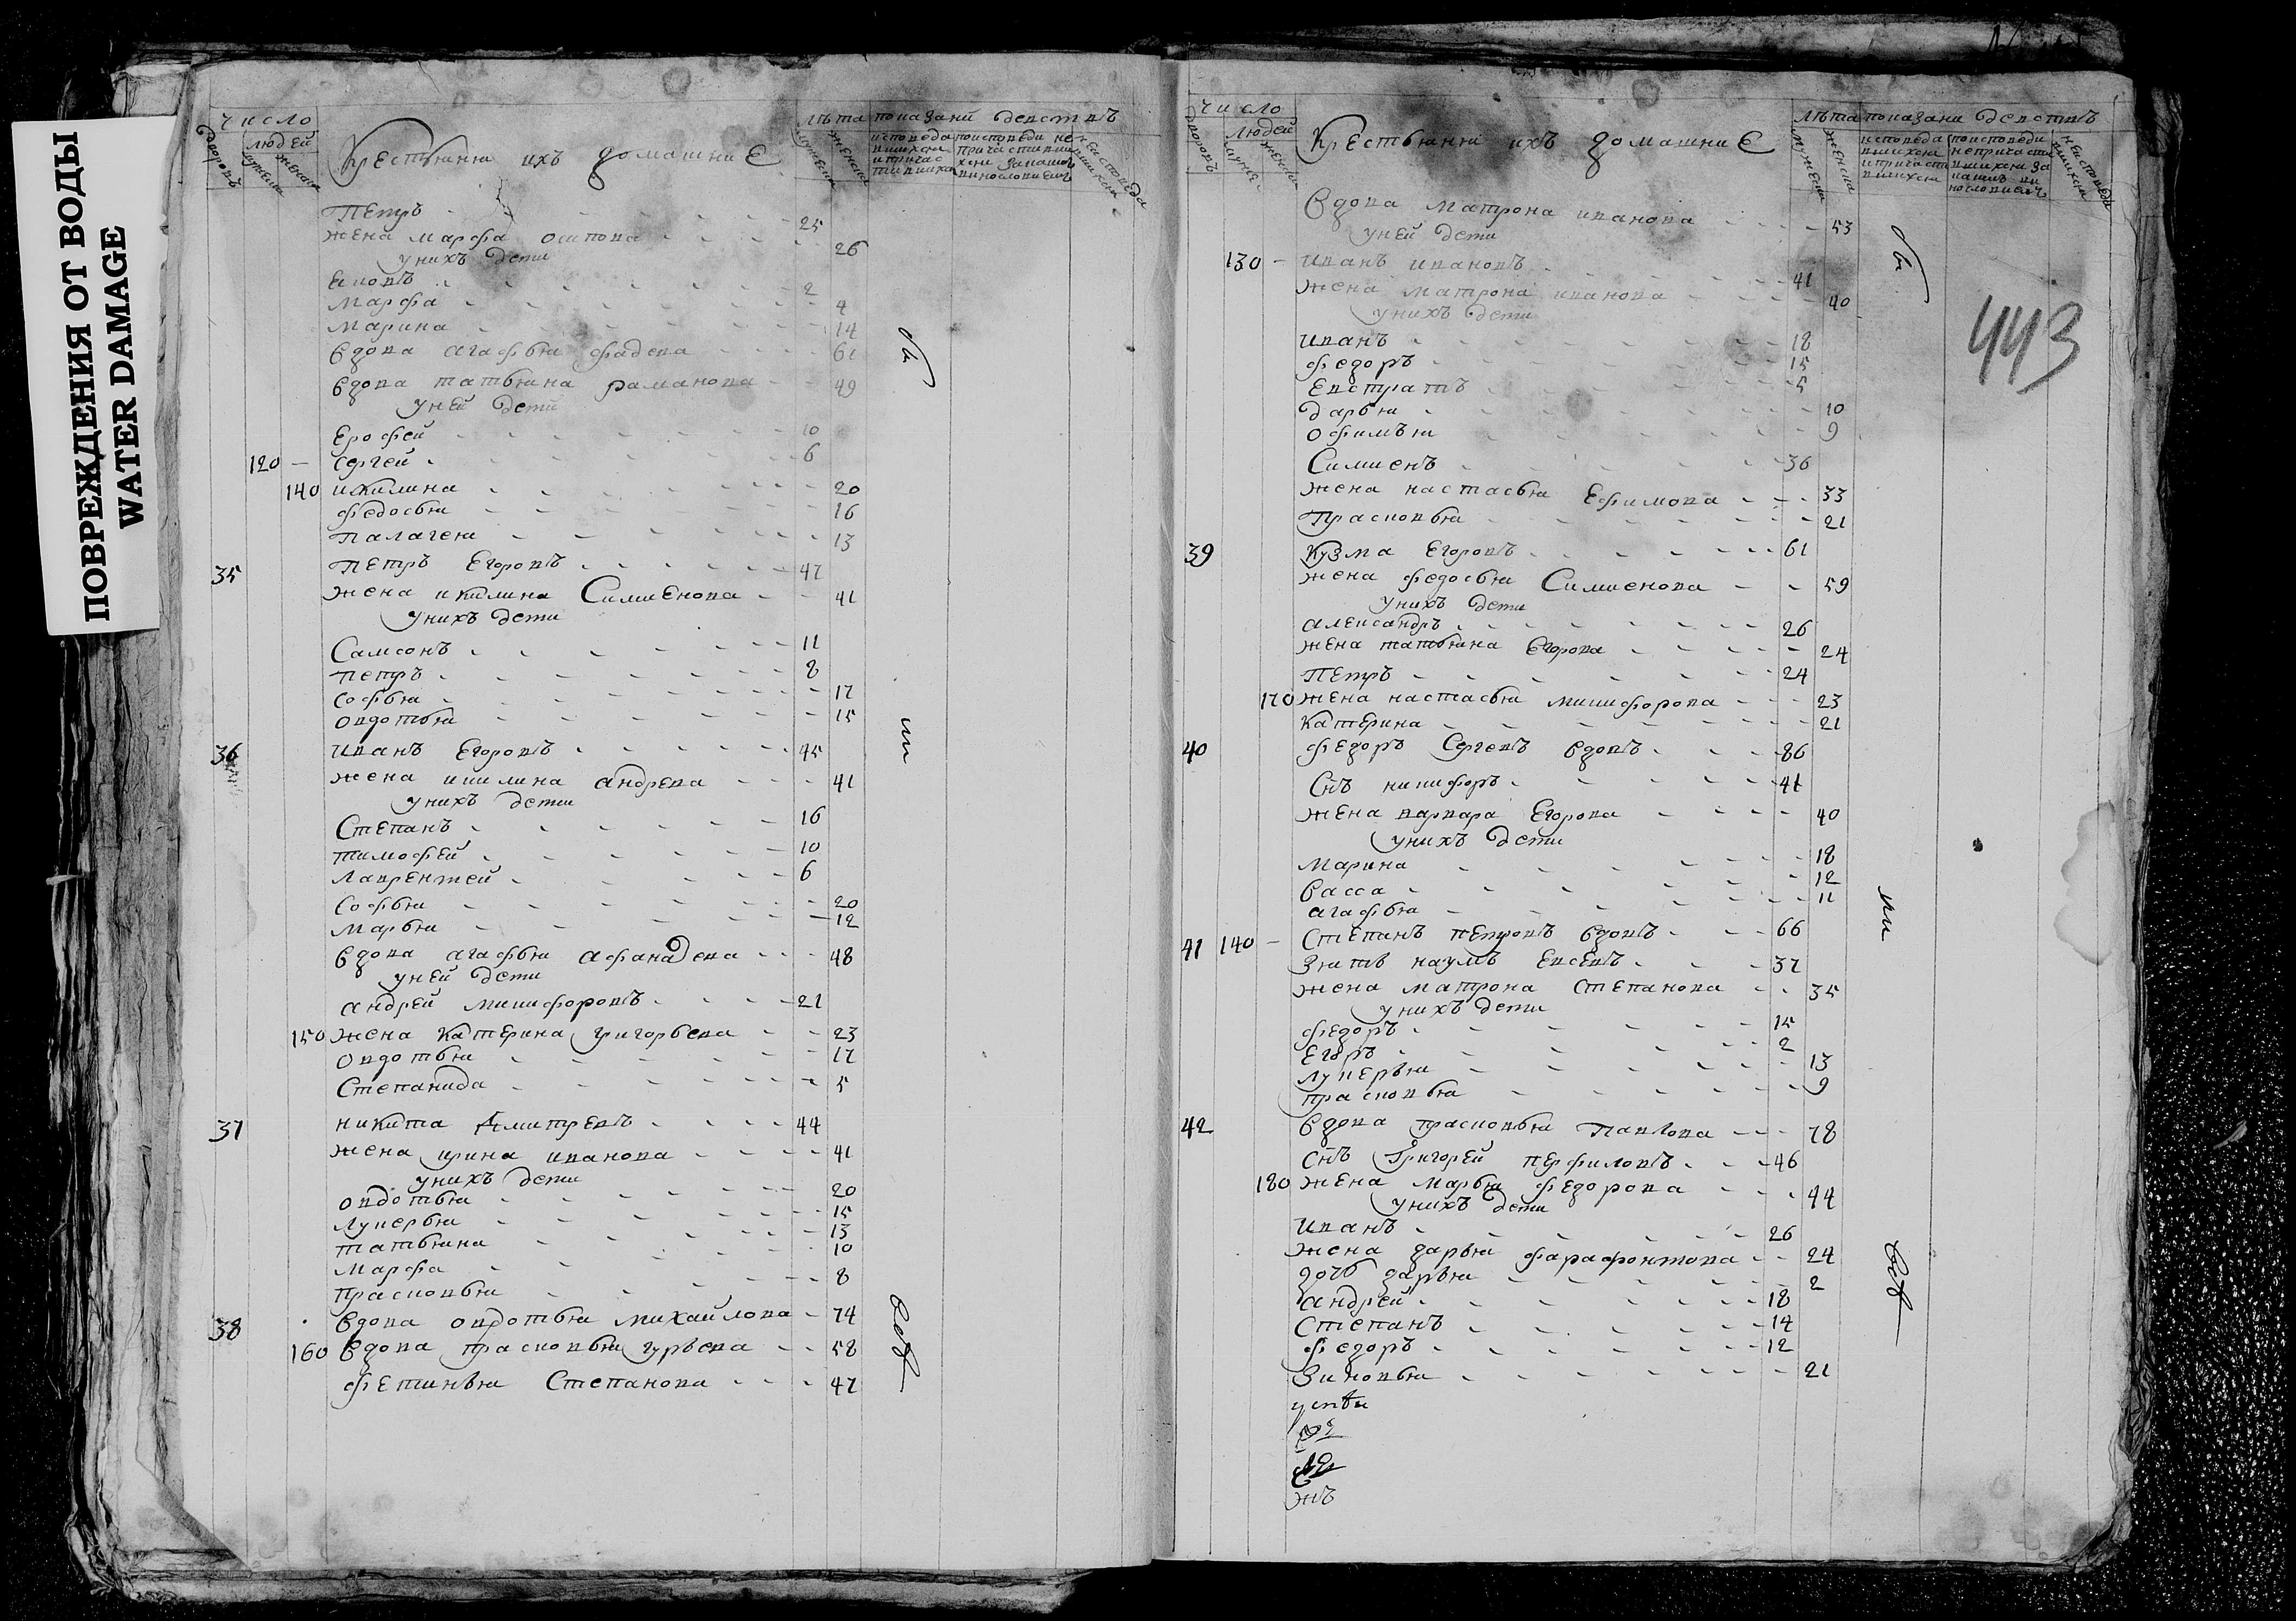 ПОВРЕЖДЕНИЯ ОТ ВОДЫ
WATER DAMAGE
число
дворовъ
людей
мужска
женска
Крестьяня ихъ домашние
лѣта
мужска
женска
показани действъ
исповеда
вшихся
и причас
тившихся
поисповеди не
причастивши
хся
винословиемъ
неисповеда
вшихся
Петръ 25
жена марфа осипова 26
у нихъ дети
яковъ 2
Марфа 4
Марина 14
вдова агафья фадеева 61
вдова татьяна раманова 49
у ней дети
Ерофей 10
120 – сергей 6
140 икилина 20
федосья 16
палагея 13
35 петръ Егоровъ 47
жена икилина Симиенова 41
у нихъ дети
Самсонъ 11
петръ 8
софья 17
овдотья 15
36 иванъ Егоровъ 45
жена икилина андреева 41
у нихъ дети
Степанъ 16
тимофей 10
лаврентей 6
софья 20
марья 12
вдова агафья 48
у ней дети
андрей никифоровъ 21
150 жена катерина григорьева 23
овдотья 17
Степанида 5
37 никита Дмитревъ 44
жена ирина иванова 41
у нихъ дети
овдотья 20
лукерья 15
татьяна 13
марфа 10
прасковья 8
38 вдова овдотья михайлова 74
160 вдова прасковья гурьева 58
фетинья Степанова 47
были
вст
число
дворовъ
людей
женска
Крестьяня ихъ домашние
лѣта
мужска
женска
показани действъ
исповеда
вшихся
и причасти
вшихся
поисповеди
непричасти
вшихся за
винословиемъ
неисповеда
вшихся
443
вдова матрона иванова 53
у ней дети
130 – иванъ ивановъ 41
жена матрона иванова 40
у нихъ дети
иванъ 18
федоръ 15
Евстратъ 5
дарья 10
офимья 9
Симиенъ 36
жена настасья Ефимова 33
Прасковья 21
39 кузма Егоровъ 61
жена федосья Симиенова 59
у нихъ дети
александръ 26
жена татьяна Егорова 24
петръ 24
170 жена настасья никифорова 23
катерина 21
40 федоръ Сергевъ вдовъ 86
снъ никифоръ 41
жена варвара Егорова 40
у нихъ дети
Марина 18
васса 12
агафья 11
41 140 – Степанъ петровъ вдовъ 66
зять наумъ Евсевъ 37
жена матрона Степанова 35
у нихъ дети
федоръ 15
Егоръ 2
лукерья 13
прасковья 9
42 вдова прасковья Павлова 78
снъ григорей перфиловъ 46
180 жена марья федорова 44
у нихъ дети
иванъ 26
жена дарья фарафонтова 24
дочь дарья 2
андрей 18
Степанъ 14
федоръ 12
Зиновья 21